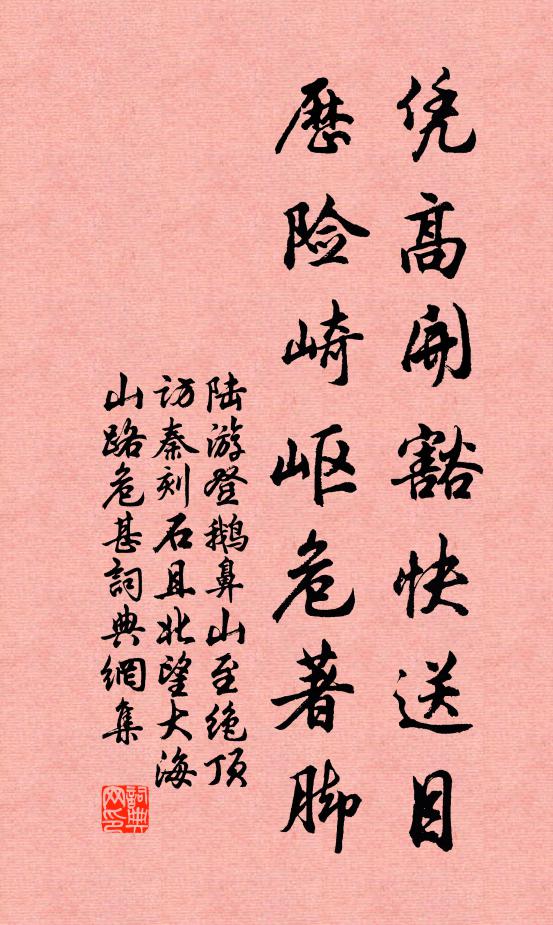 凭高开豁快送目
历险崎岖危著脚
陆游登鹅鼻山至绝顶
访秦刻石且北望大海
山路危甚詞典網集
詞典
网印